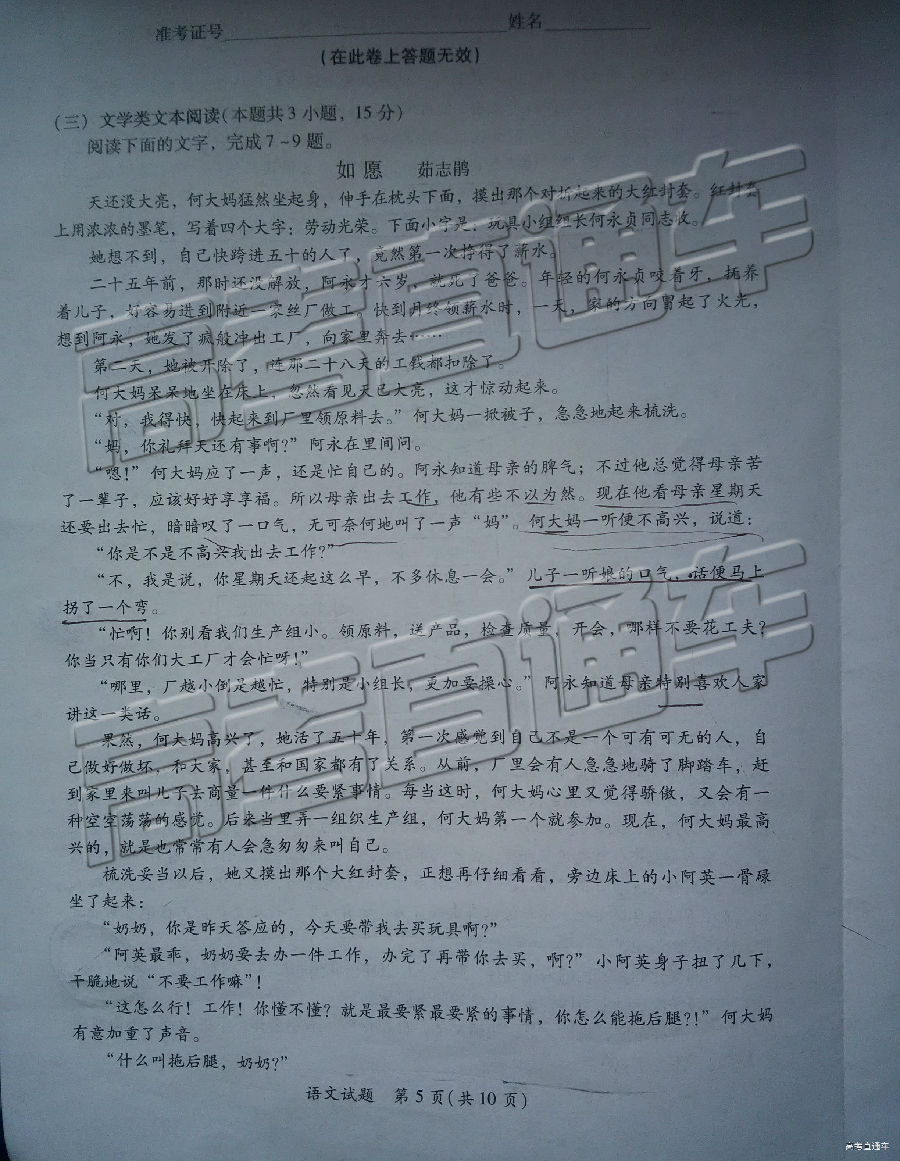 准考证号 姓名
(在此卷上答题无效)
(三) 文学类文本阅读(本题共3小题, 15分)
阅读下面的文字, 完成7~9题。
如愿 茹志鹃
天还没大亮, 何大妈猛然坐起身, 伸手在枕头下面, 摸出那个对折起来的大红封套。红封套
上用浓浓的墨笔, 写着四个大字: 劳动光荣。下面小字是: 玩具小组组长何永贞同志收。
她想不到, 自己快跨进五十的人了, 竟然第一次挣得了薪水。
二十五年前, 那时还没解放, 阿永才六岁, 就死了爸爸。年轻的何永贞咬着牙, 抚养
着儿子, 好容易进到附近一家丝厂做工。快到月终领薪水时, 一天, 家的方向冒起了火光,
想到阿永, 她发了疯般冲出工厂, 向家里奔去……
第二天, 她被开除了, 连那二十八天的工钱都扣除了。
何大妈呆呆地坐在床上, 忽然看见天已大亮, 这才惊动起来。
“对, 我得快, 快起来到厂里领原料去。”何大妈一掀被子, 急急地起来梳洗。
“妈, 你礼拜天还有事啊?”阿永在里间问。
“嗯!”何大妈应了一声, 还是忙自己的。阿永知道母亲的脾气; 不过他总觉得母亲苦
了一辈子, 应该好好享享福。所以母亲出去工作, 他有些不以为然。现在他看母亲星期天
还要出去忙, 暗暗叹了一口气, 无可奈何地叫了一声“妈”。何大妈一听便不高兴, 说道:
“你是不是不高兴我出去工作?”
“不, 我是说, 你星期天还起这么早, 不多休息一会。”儿子一听娘的口气, 话便马上
拐了一个弯。
“忙啊! 你别看我们生产组小。领原料, 送产品, 检查质量, 开会, 哪样不要花工夫?
你当只有你们大工厂才会忙呀!”
“哪里, 厂越小倒是越忙, 特别是小组长, 更加要操心。”阿永知道母亲特别喜欢人家
讲这一类话。
果然, 何大妈高兴了, 她活了五十年, 第一次感觉到自己不是一个可有可无的人, 自
己做好做坏, 和大家, 甚至和国家都有了关系。从前, 厂里会有人急急地骑了脚踏车, 赶
到家里来叫儿子去商量一件什么要紧事情。每当这时, 何大妈心里又觉得骄傲, 又会有一
种空空荡荡的感觉。后来当里弄一组织生产组, 何大妈第一个就参加。现在, 何大妈最高
兴的, 就是也常常有人会急匆匆来叫自己。
梳洗妥当以后, 她又摸出那个大红封套, 正想再仔细看看, 旁边床上的小阿英一骨碌
坐了起来:
“奶奶, 你是昨天答应的, 今天要带我去买玩具啊?”
“阿英最乖, 奶奶要去办一件工作, 办完了再带你去买, 啊?”小阿英身子扭了几下,
干脆地说“不要工作嘛”!
“这怎么行! 工作! 你懂不懂? 就是最要紧最要紧的事情, 你怎么能拖后腿?!”何大妈
有意加重了声音。
“什么叫拖后腿, 奶奶?”
语文试题 第5页(共10页)
高考直通车
高考直通车
高考直通车